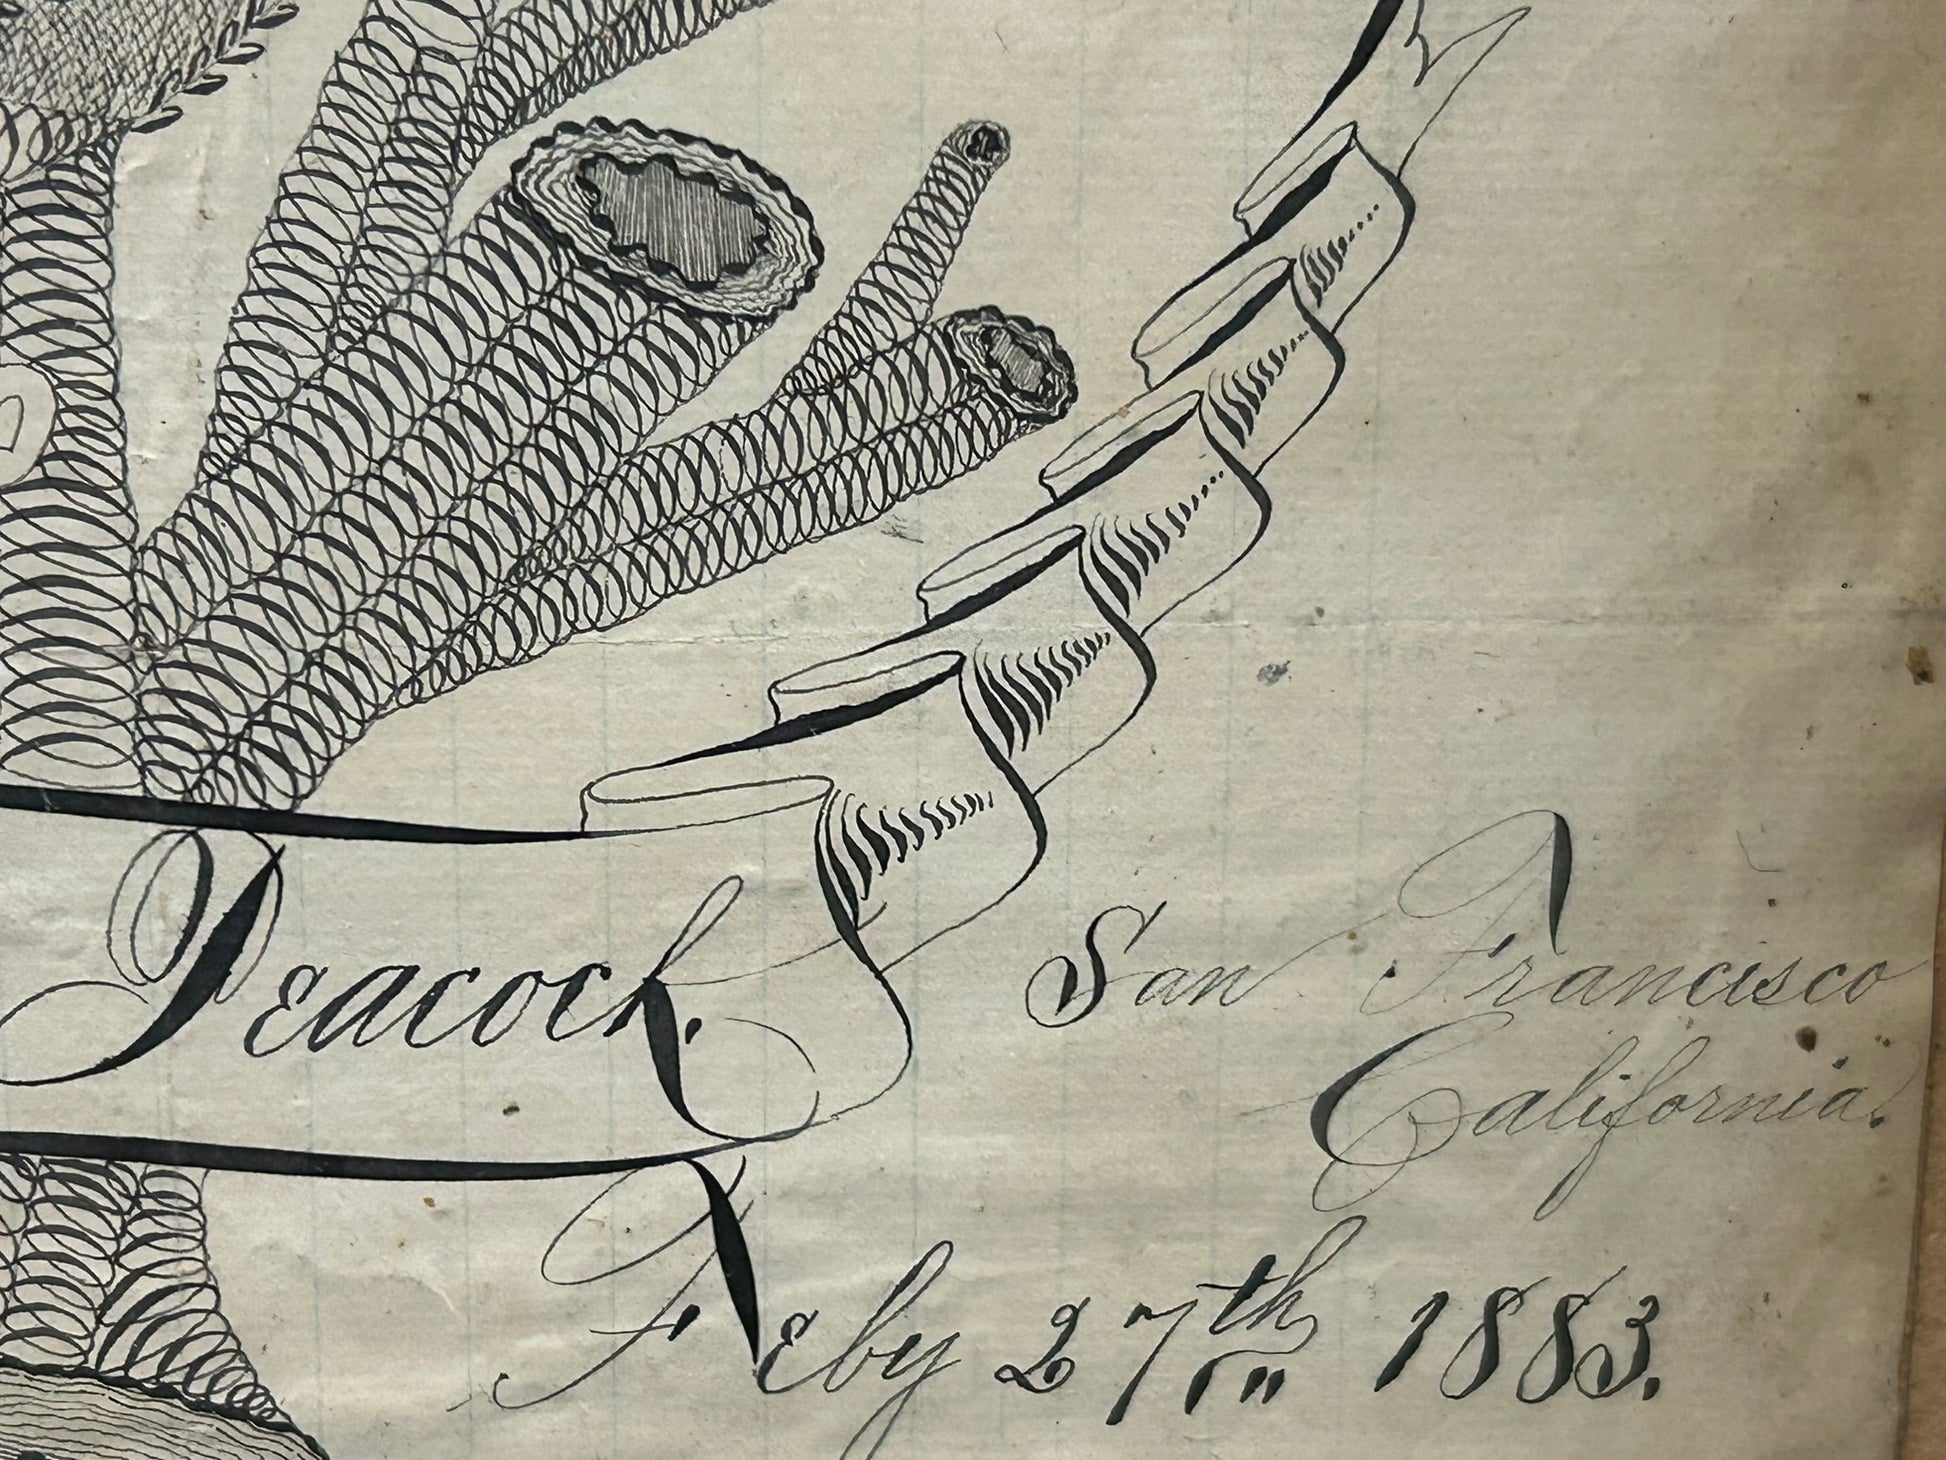 Peacock.
San Francisco
California.
Feby 27th 1883.